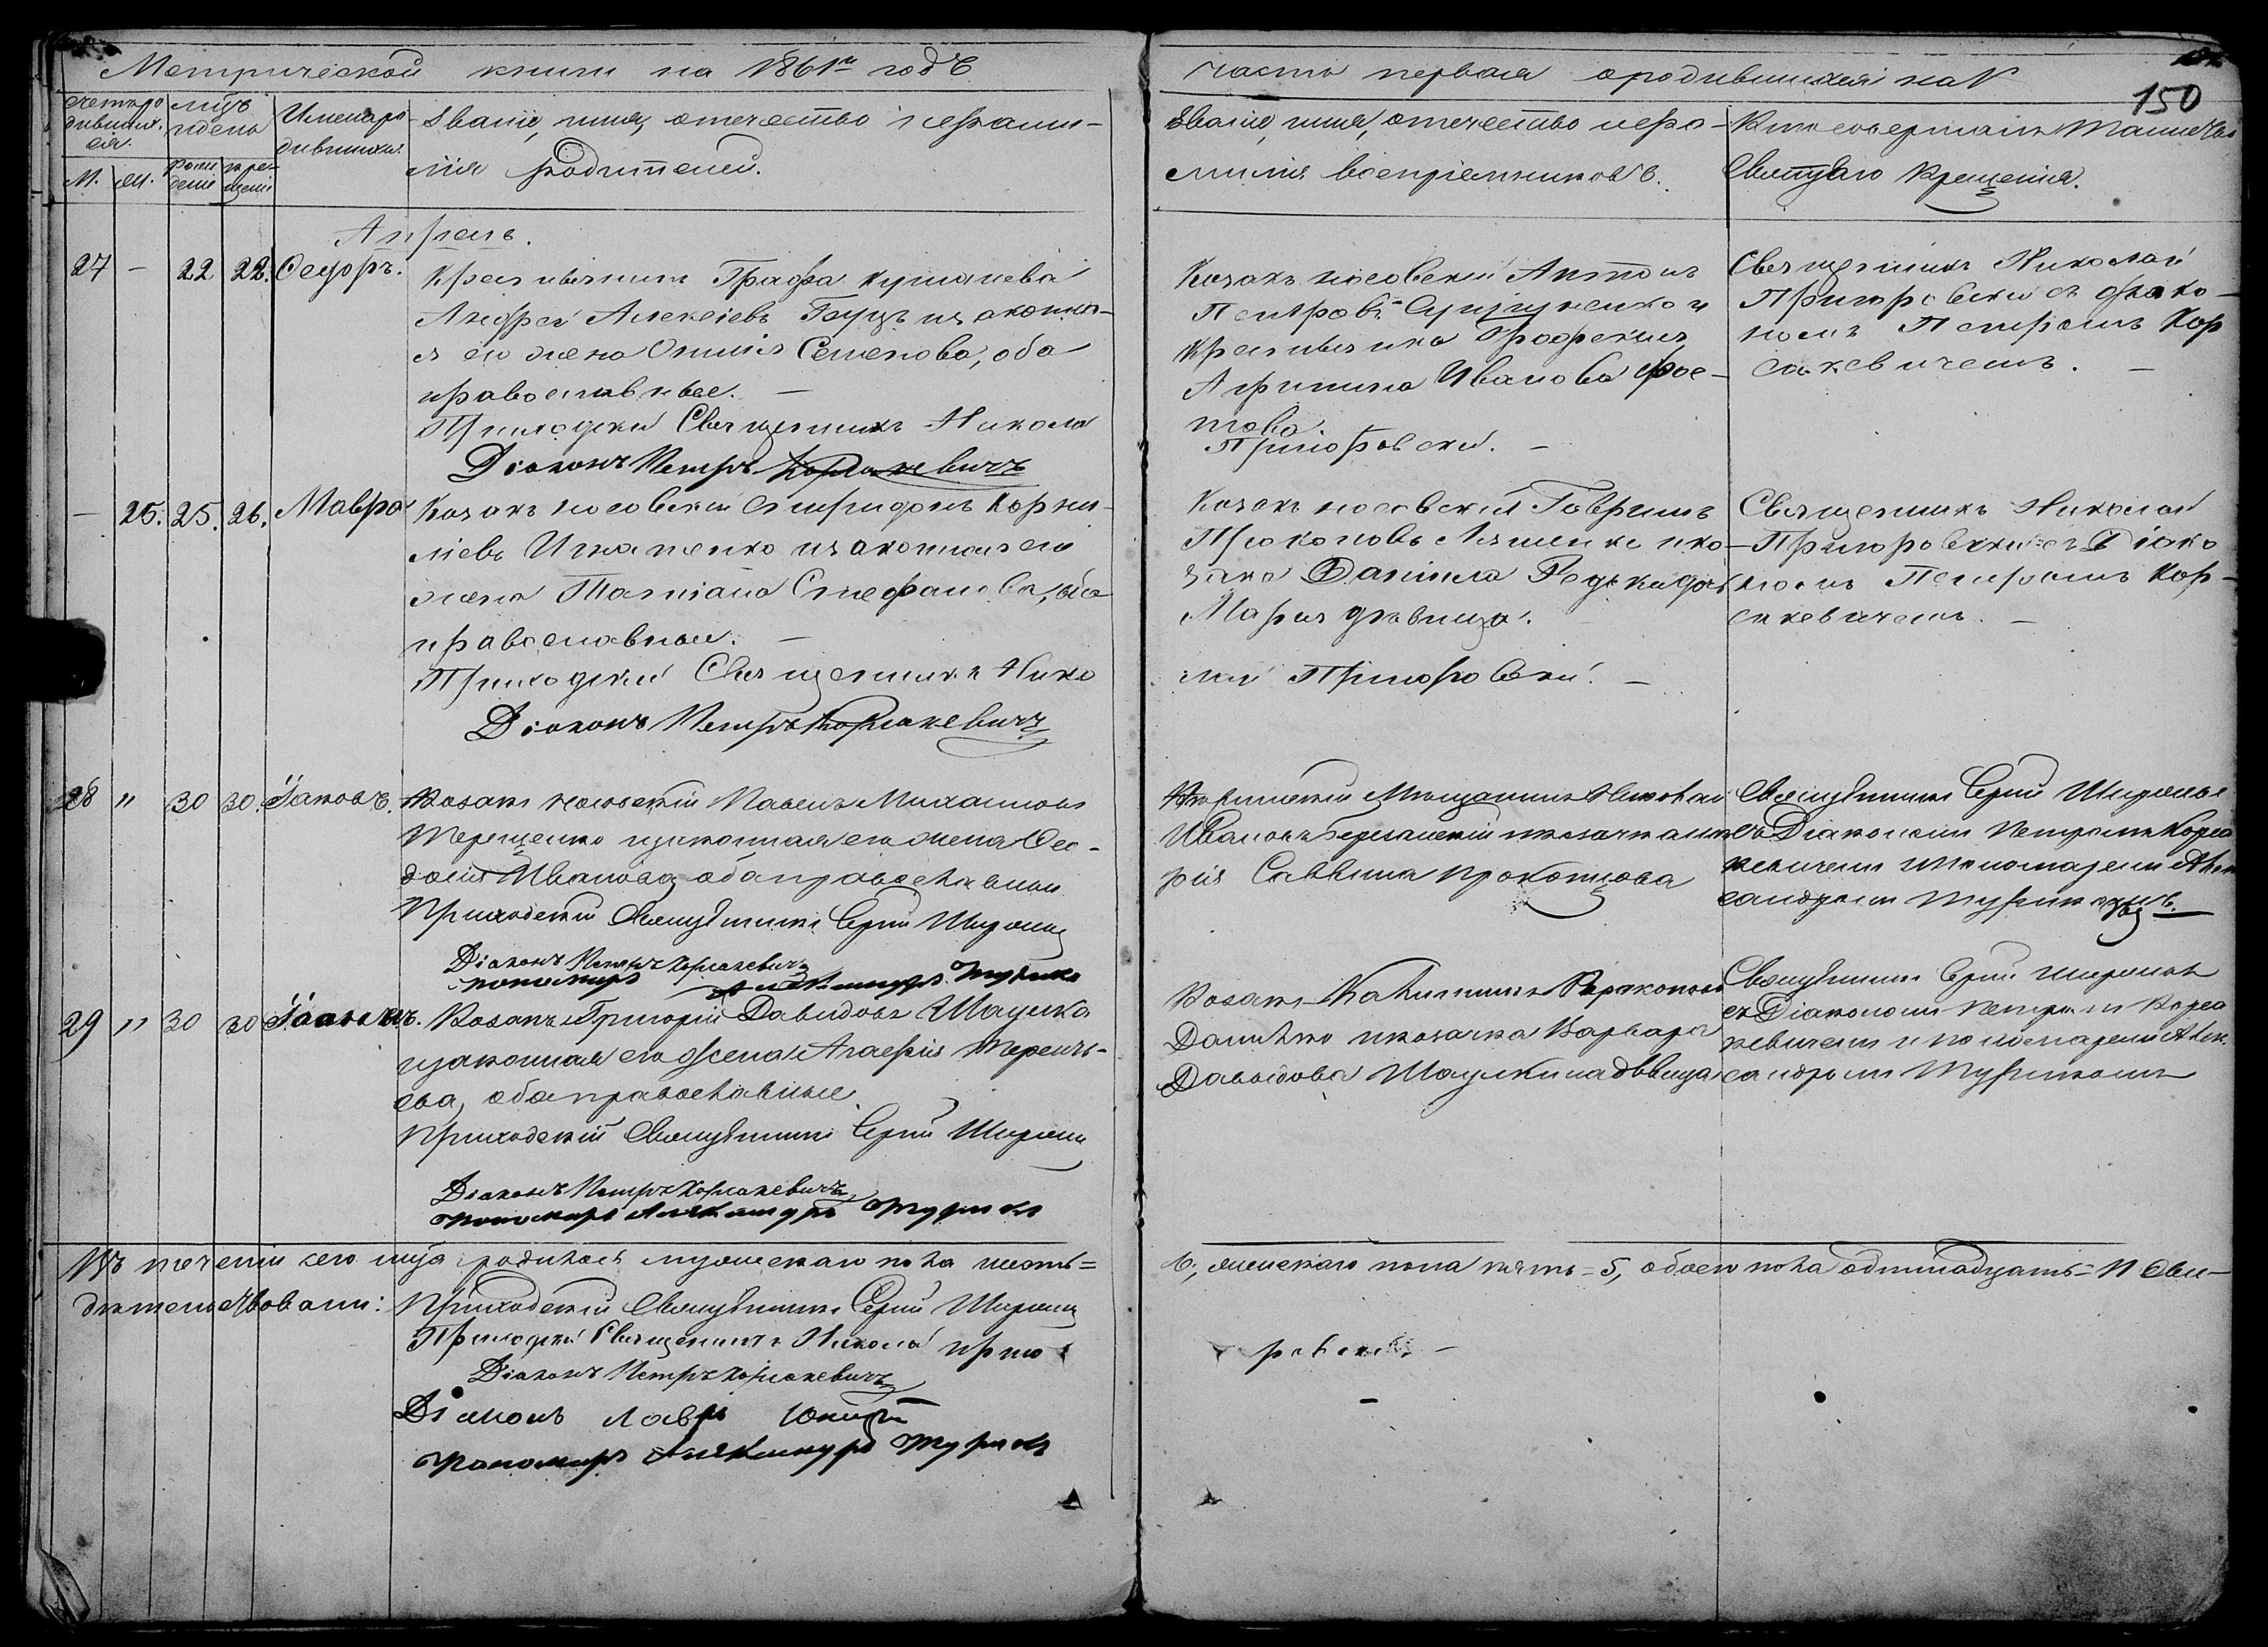 Метрической книги на 1861й годъ
часть первая о родившихся на
150
Счетъ ро
дившихся.
М. Ж.
Мѣсяцъ и день
рождение крещение
Имена ро-
дившихся
Званіе, имя, отечество и фами-
лія родителей.
Званіе, имя, отечество и фа-
милія воспріемниковъ.
Кто совершалъ таинство
Святаго Крещенія.
Апрель.
27 — 22 22. Сидоръ.
Крестьянинъ Графа Кушелева
Андрей Алексіевъ Гоуцъ и законна-
я его жена Семенова, оба
православные. —
Приходскій Священникъ Никола
Діаконъ Петръ Корсакевичъ
Козакъ носовскій Антонъ
Петровъ и
Крестьянка Графская
Агрипина Иванова
това.
Пригоровскій. —
Священникъ Николай
Пригоровскій съ діако-
номъ Петромъ Кор
сакевичемъ. —
— 25. 25. 26. Мавра
Козакъ носовскій Спиридонъ Корни-
ліевъ Игнатенко и законная его
жена Татіана Стефанова, оба
православные. —
Приходскій Священникъ Нико
Діаконъ Петръ Корсакевичъ
Козакъ носовскій Гавріилъ
Прокоповъ Ляшенко и ко-
зака Даніила Редьки дочь
Марія дѣвица.
лай Пригоровскій. —
Священникъ Николай
Пригоровскій съ Діако
номъ Петромъ Кор-
сакевичемъ. —
28 " 30 30. Іаковъ.
Козакъ носовскій Павелъ Михаиловъ
Терещенко и законная его жена Ѳео-
досія Иванова, оба православные
Приходскій Священникъ Сергій
Діаконъ Петръ Корсакевичъ
пономарь Александръ Турикъ
Мещанинъ
Ивановъ и козачка Ма-
рія Саввина Прокопцова
Священникъ Сергій
съ Діакономъ Петромъ Корса
кевичемъ и пономаремъ Алек
сандромъ Турикомъ. —
29 " 30 30 Іоаннъ.
Козакъ Григорій Давидовъ Шаулка
и законная его жена Терентье-
ева, оба православные
Приходскій Священникъ Сергій
Діаконъ Петръ Корсакевичъ
пономарь Александръ Турикъ
Козакъ Каленикъ
Данилко и козачка Варвара
Давыдова Шаулкина дѣвица
Священникъ Сергій
съ Діакономъ Петромъ Корса
кевичемъ и пономаремъ Алек-
сандромъ Турикомъ
Въ теченіи сего мѣсяца родилось мужескаго пола шесть=
6, женскаго пола пять=5, обоего пола одиннадцать=11 Сви-
дѣтельствовали: Приходскій Священникъ Сергій
Приходскій Священникъ Николай Приго
ровскій. —
Діаконъ Петръ Корсакевичъ
Діаконъ
пономарь Александръ Турикъ